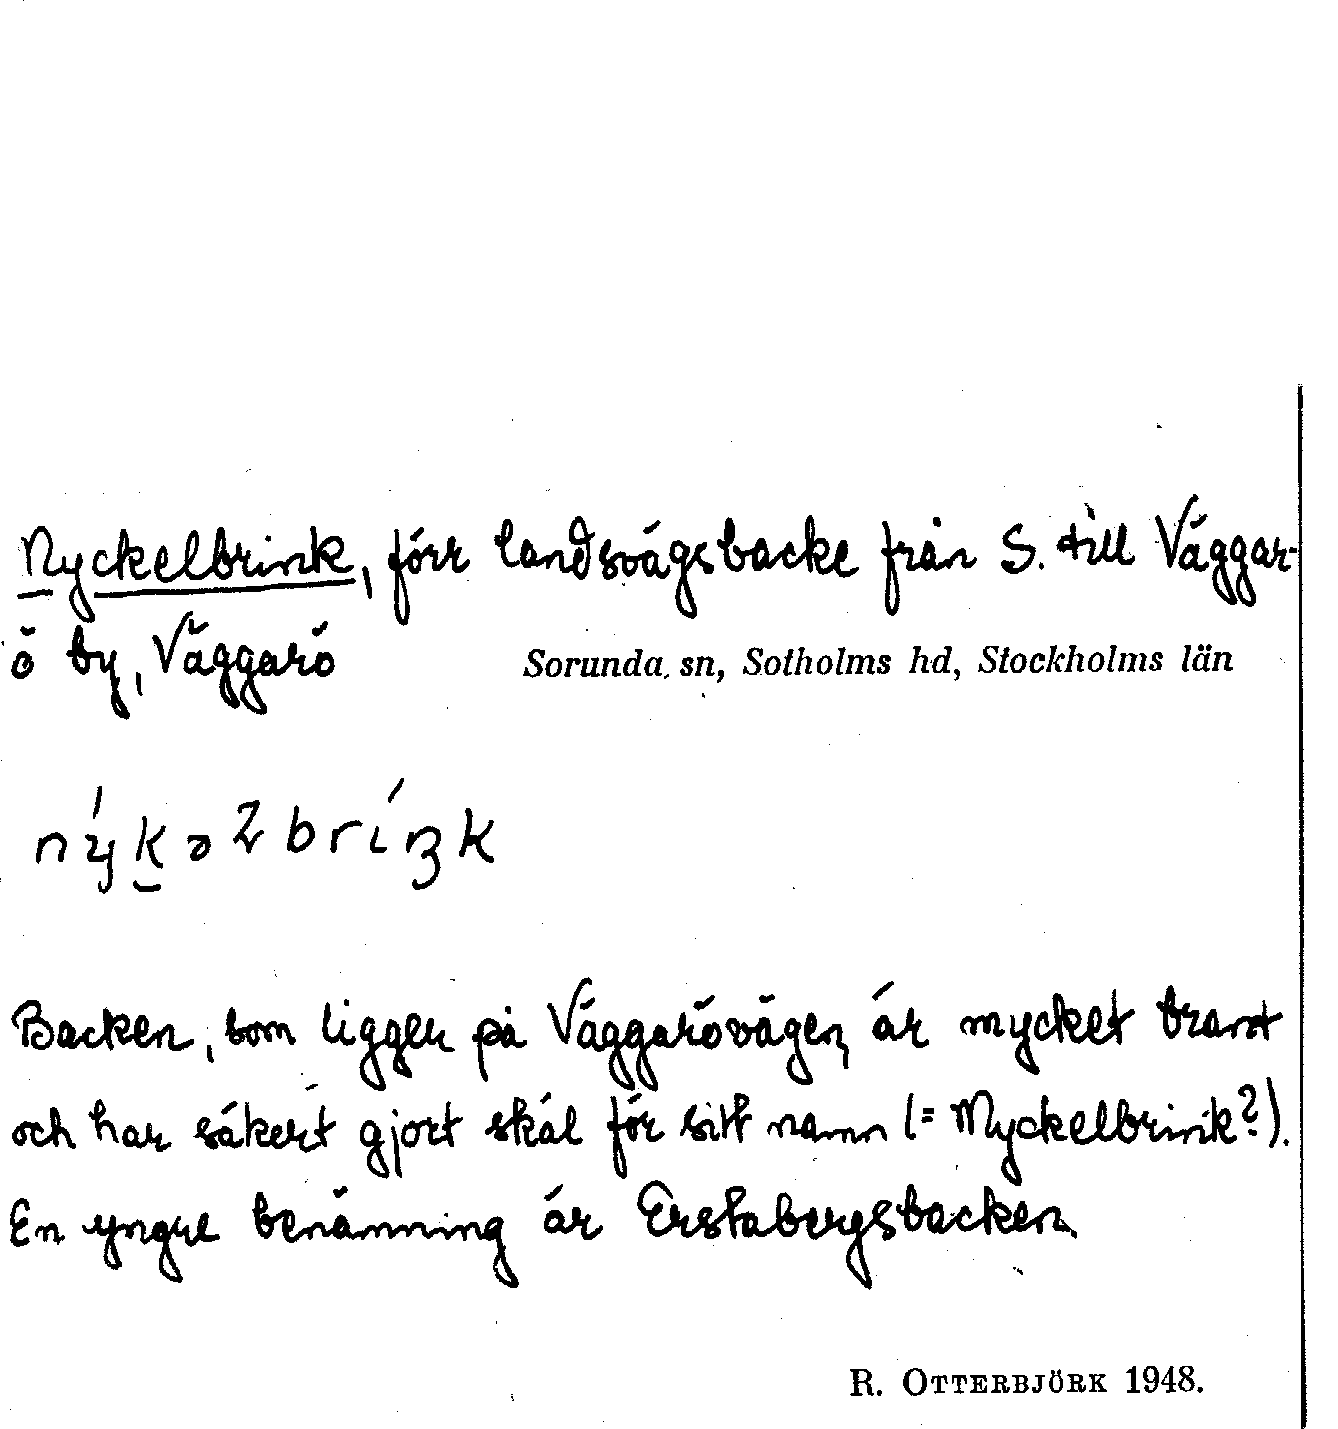 Nyckelbrink, förr landsvägsbacke från S. till Väggar-
ö by, Väggarö
Sorunda sn, Sotholms hd, Stockholms län
Backen, som ligger på Väggarövägen, är mycket brant
och har säkert gjort skäl för sitt namn (= Myckelbrink?).
En yngre benämning är Erstabergsbacken.
R. OTTERBJÖRK 1948.